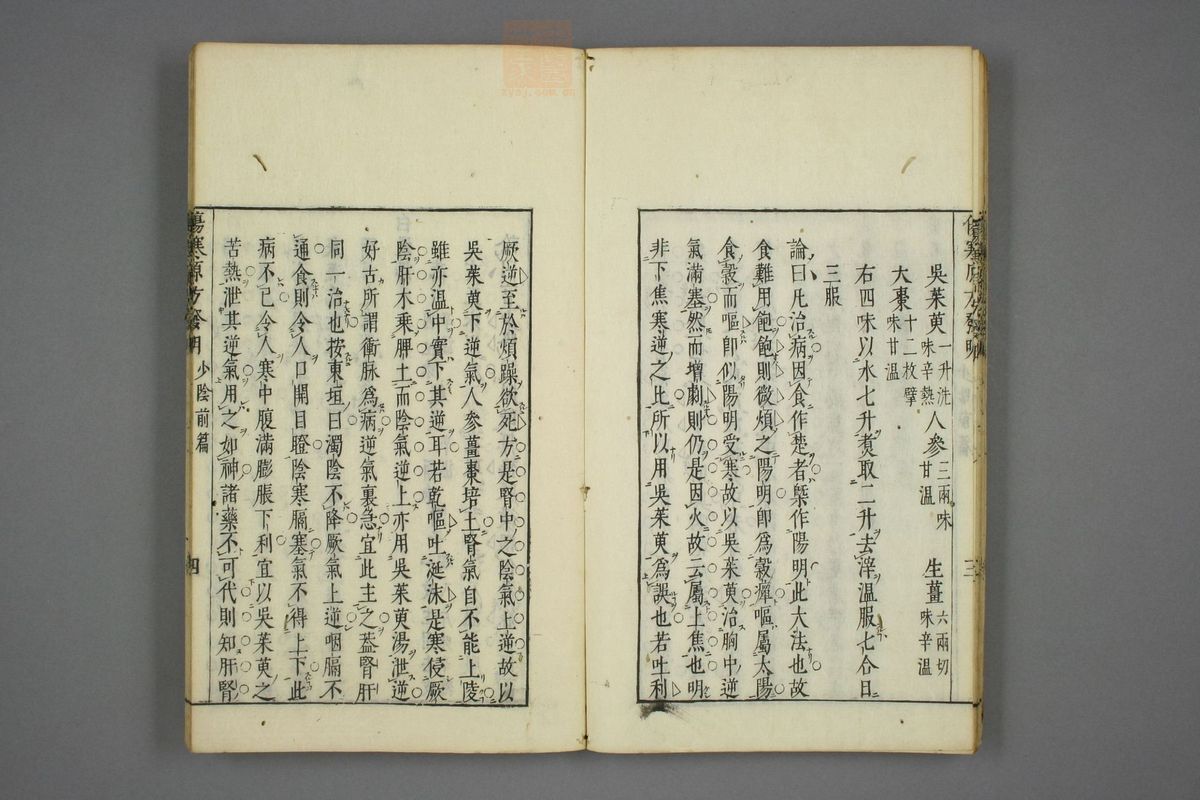 吳茱萸一升洗味辛熱人參三兩味甘溫生薑六兩切味辛溫
大棗十二枚擘味甘溫
右四味以水七升煑取二升去滓溫服七合日
三服
論曰凡治病因食作楚者槩作陽明此大法也故
食難用飽飽則微煩之陽明卽爲穀癉嘔屬太陽
食穀而嘔卽似陽明受寒故以吳茱萸治胸中逆
氣滿塞然而增劇則仍是因火故云屬上焦也明
非下焦寒逆之比所以用吳茱萸爲誤也若吐利
三
厥逆至於煩躁欲死方是腎中之陰氣上逆故以
吳茱萸下逆氣人參薑棗培土腎氣自不能上陵
雖亦溫中實下其逆耳若乾嘔吐涎沫是寒侵厥
陰肝木乘脾土而陰氣逆上亦用吳茱萸湯泄逆
好古所謂衝脉爲病逆氣裏急宜此主之葢腎肝
同一治也按東垣曰濁陰不降厥氣上逆咽膈不
通食則令人口開目瞪陰寒膈塞氣不得上下此
病不已令人寒中腹滿膨脹下利宜以吳茱萸之
苦熱泄其逆氣用之如神諸藥不可代則知肝腎
傷寒源方發明 少陰前篇 四